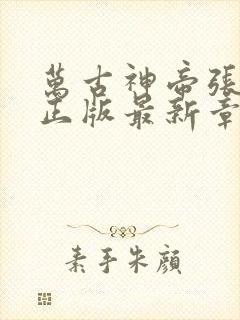 萬古神帝張
正版最新章
素手朱顔